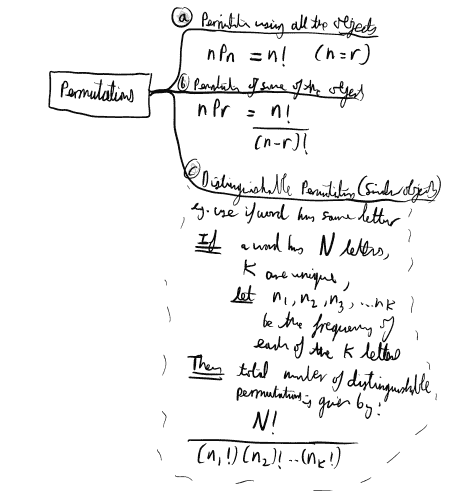 Permutations
(a) Permutation using all the objects
nPn = n! (n=r)
(b) Permutation of some of the objects
nPr = n!
(n-r)!
(c) Distinguishable Permutations (Similar objects)
eg. use if word has same letter
If a word has N letters,
K are unique,
let n1, n2, n3, ...nk
be the frequency of
each of the K letters
Then total number of distinguishable
permutations is given by:
N!
(n1!)(n2)!...(nk!)